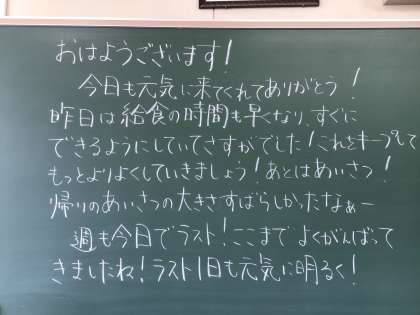 おはようございます！
今日も元気に来てくれてありがとう！
昨日は給食の時間も早くなり、すぐに
できるようにしていてさすがでした！これをキープして
もっとよりよくしていきましょう！あとはあいさつ！
帰りのあいさつの大きさすばらしかったなぁー
週も今日でラスト！ここまでよくがんばって
きましたね！ラスト1日も元気に明るく！